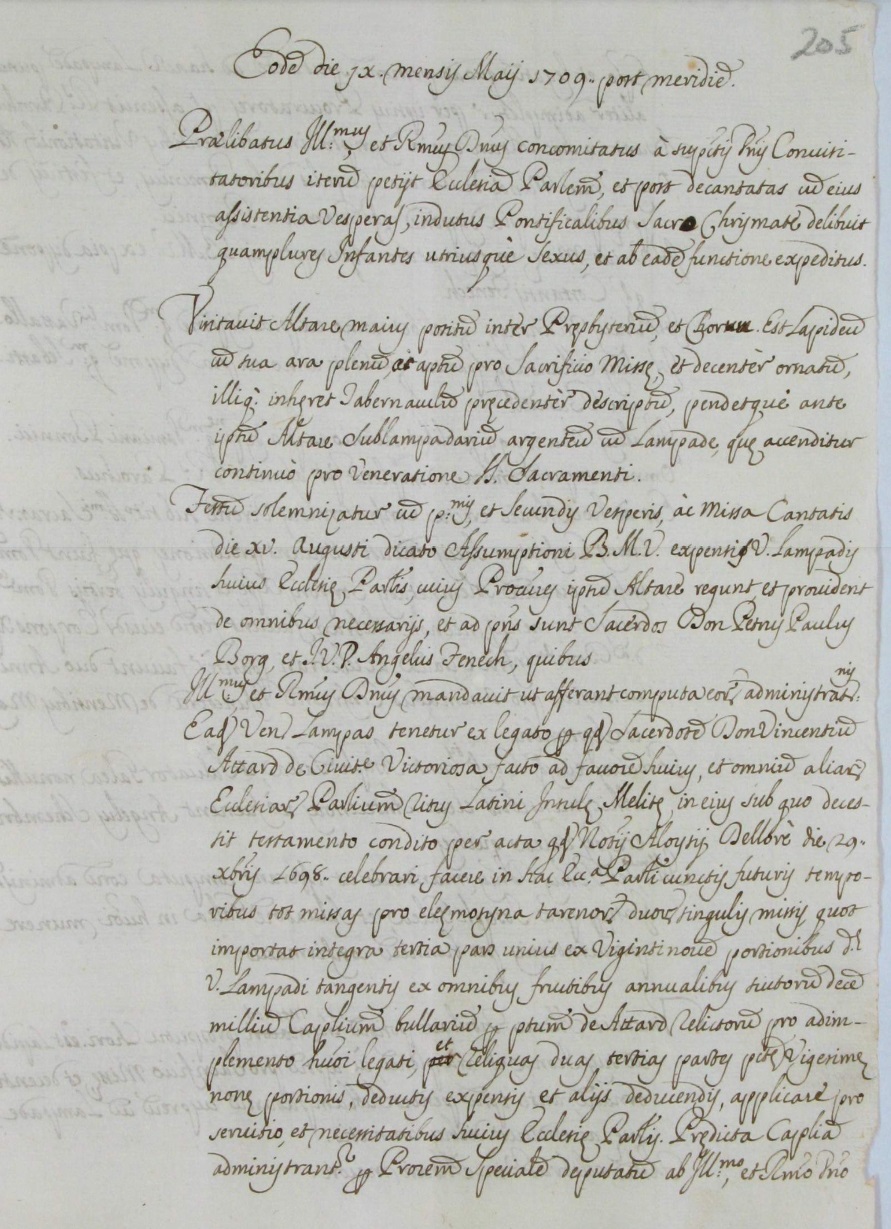 205
Eodẽ die jx. mensis Maij 1709. post meridiẽ.
Prælibatus Ill.mus et Rmus Dnus concomitatus à supctis Dnis Convisi-
tatoribus iterũ petijt Ecclesiã Parlem, et post decantatas cũ eius
assistentia Vesperas, indutus Pontificalibus Sacro Chrismate delibuit
quamplures Infantes utriusquè sexus, et ab eadẽ functione expeditus.
Visitavit Altare maius positũ intèr Pręsbyteriũ, et Chorum. Est Lapideũ
cũ sua ara plenũ, et aptũ pro Sacrificio Missę, et decentèr ornatũ,
illiq. inhęret Tabernaculũ pręcedentèr descriptũ, pendetquè ante
iptũ Altare Sublampadariũ argenteũ cũ Lampade, quę accenditur
continuò pro veneratione SS. Sacramenti.
Festũ solemnizatur cũ p.mis, et secundis Vesperis, ac Missa Cantatis
die xv. Augusti dicato Assumptioni B.M.V. expensis V. Lampadis
huius Ecclesię Parlis, cuius Procures iptũ Altare regunt, et provident
de omnibus necessarijs, et ad pñs sunt Sacerdos Don Petrus Paulus
Borg, et J.V.P. Angelus Fenech, quibus
Ill.mus et Rmus Dnus mandavit ut afferant computa eor. administrat.nis
Eaq Ven. Lampas tenetur ex legato p qq Sacerdotẽ Don Vincentiũ
Attard de Civit.e Victoriosa facto ad favorẽ huius, et omniũ aliar.
Ecclesiar. Parlium ritus Latini Insulę Melitę, in eius sub quo deces-
sit testamento condito per acta qq Notij Aloysij Dellorè die 29.
xbris 1698. celebrari facere in hac Ecc.a Parli cunctis futuris tempo-
ribus tot missas pro elęmosyna tarenor. duor. singulis missis, quot
importat integra tertia pars unius ex Viginti novẽ portionibus d.
V. Lampadi tangentis ex omnibus fructibus annualibus scutorũ decẽ
milliũ Caplium bullariũ p ptum de Attard relictorũ pro adim-
plemento huoi legati, et reliquas duas tertias partes pctę Vigesimę
nonę portionis, deductis expensis et alijs deducendis, applicare pro
servitio, et necessitatibus huius Ecclesię Parlis. Prędicta Caplia
administrant.r p Prorem specialẽ deputatũ ab Ill.mo, et Rmo Dno